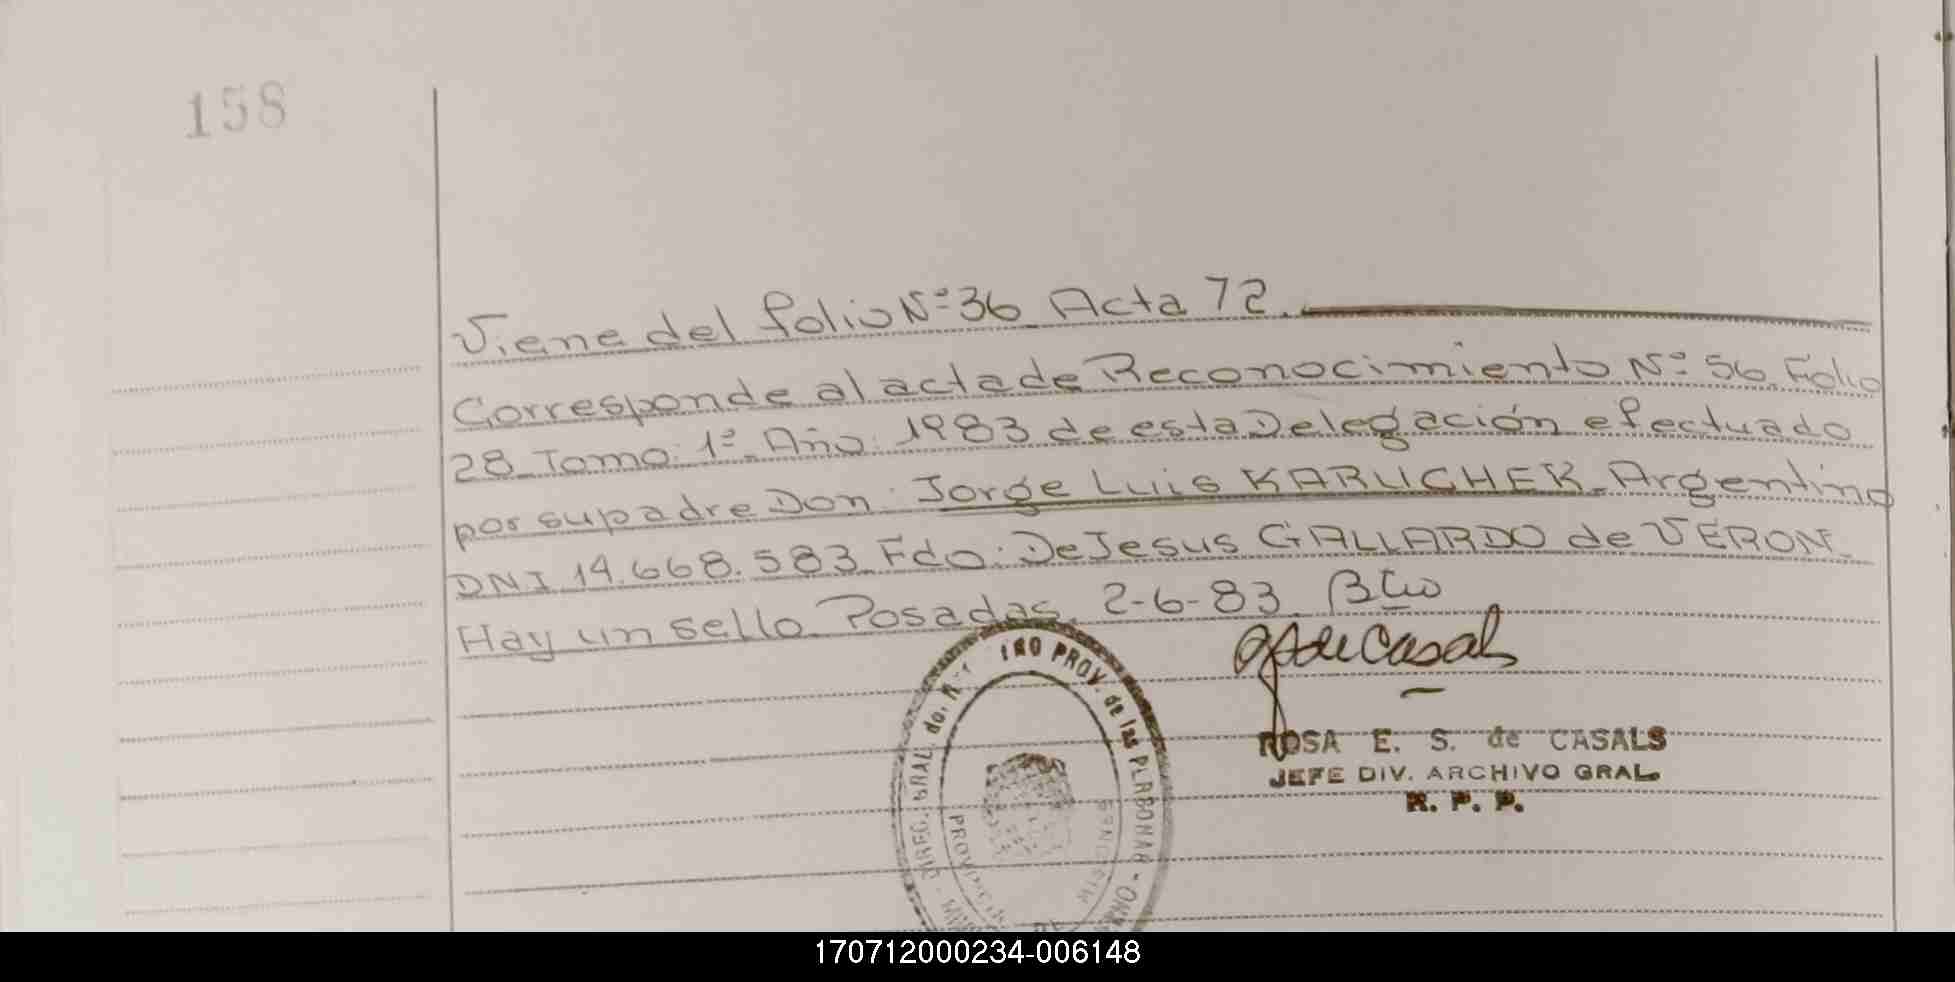 158
Viene del folio Nº 36 Acta 72.
Corresponde al acta de Reconocimiento Nº 56 Folio
28 Tomo: 1º Año: 1983 de esta Delegación efectuado
por su padre Don: Jorge Luis KARUCHEK Argentino
DNI 14.668.583 Fdo: De Jesus GALLARDO de VERON
Hay un sello. Posadas, 2-6-83
de Casals
ROSA E. S. de CASALS
JEFE DIV. ARCHIVO GRAL.
R. P. P.
PROV. de las
170712000234-006148